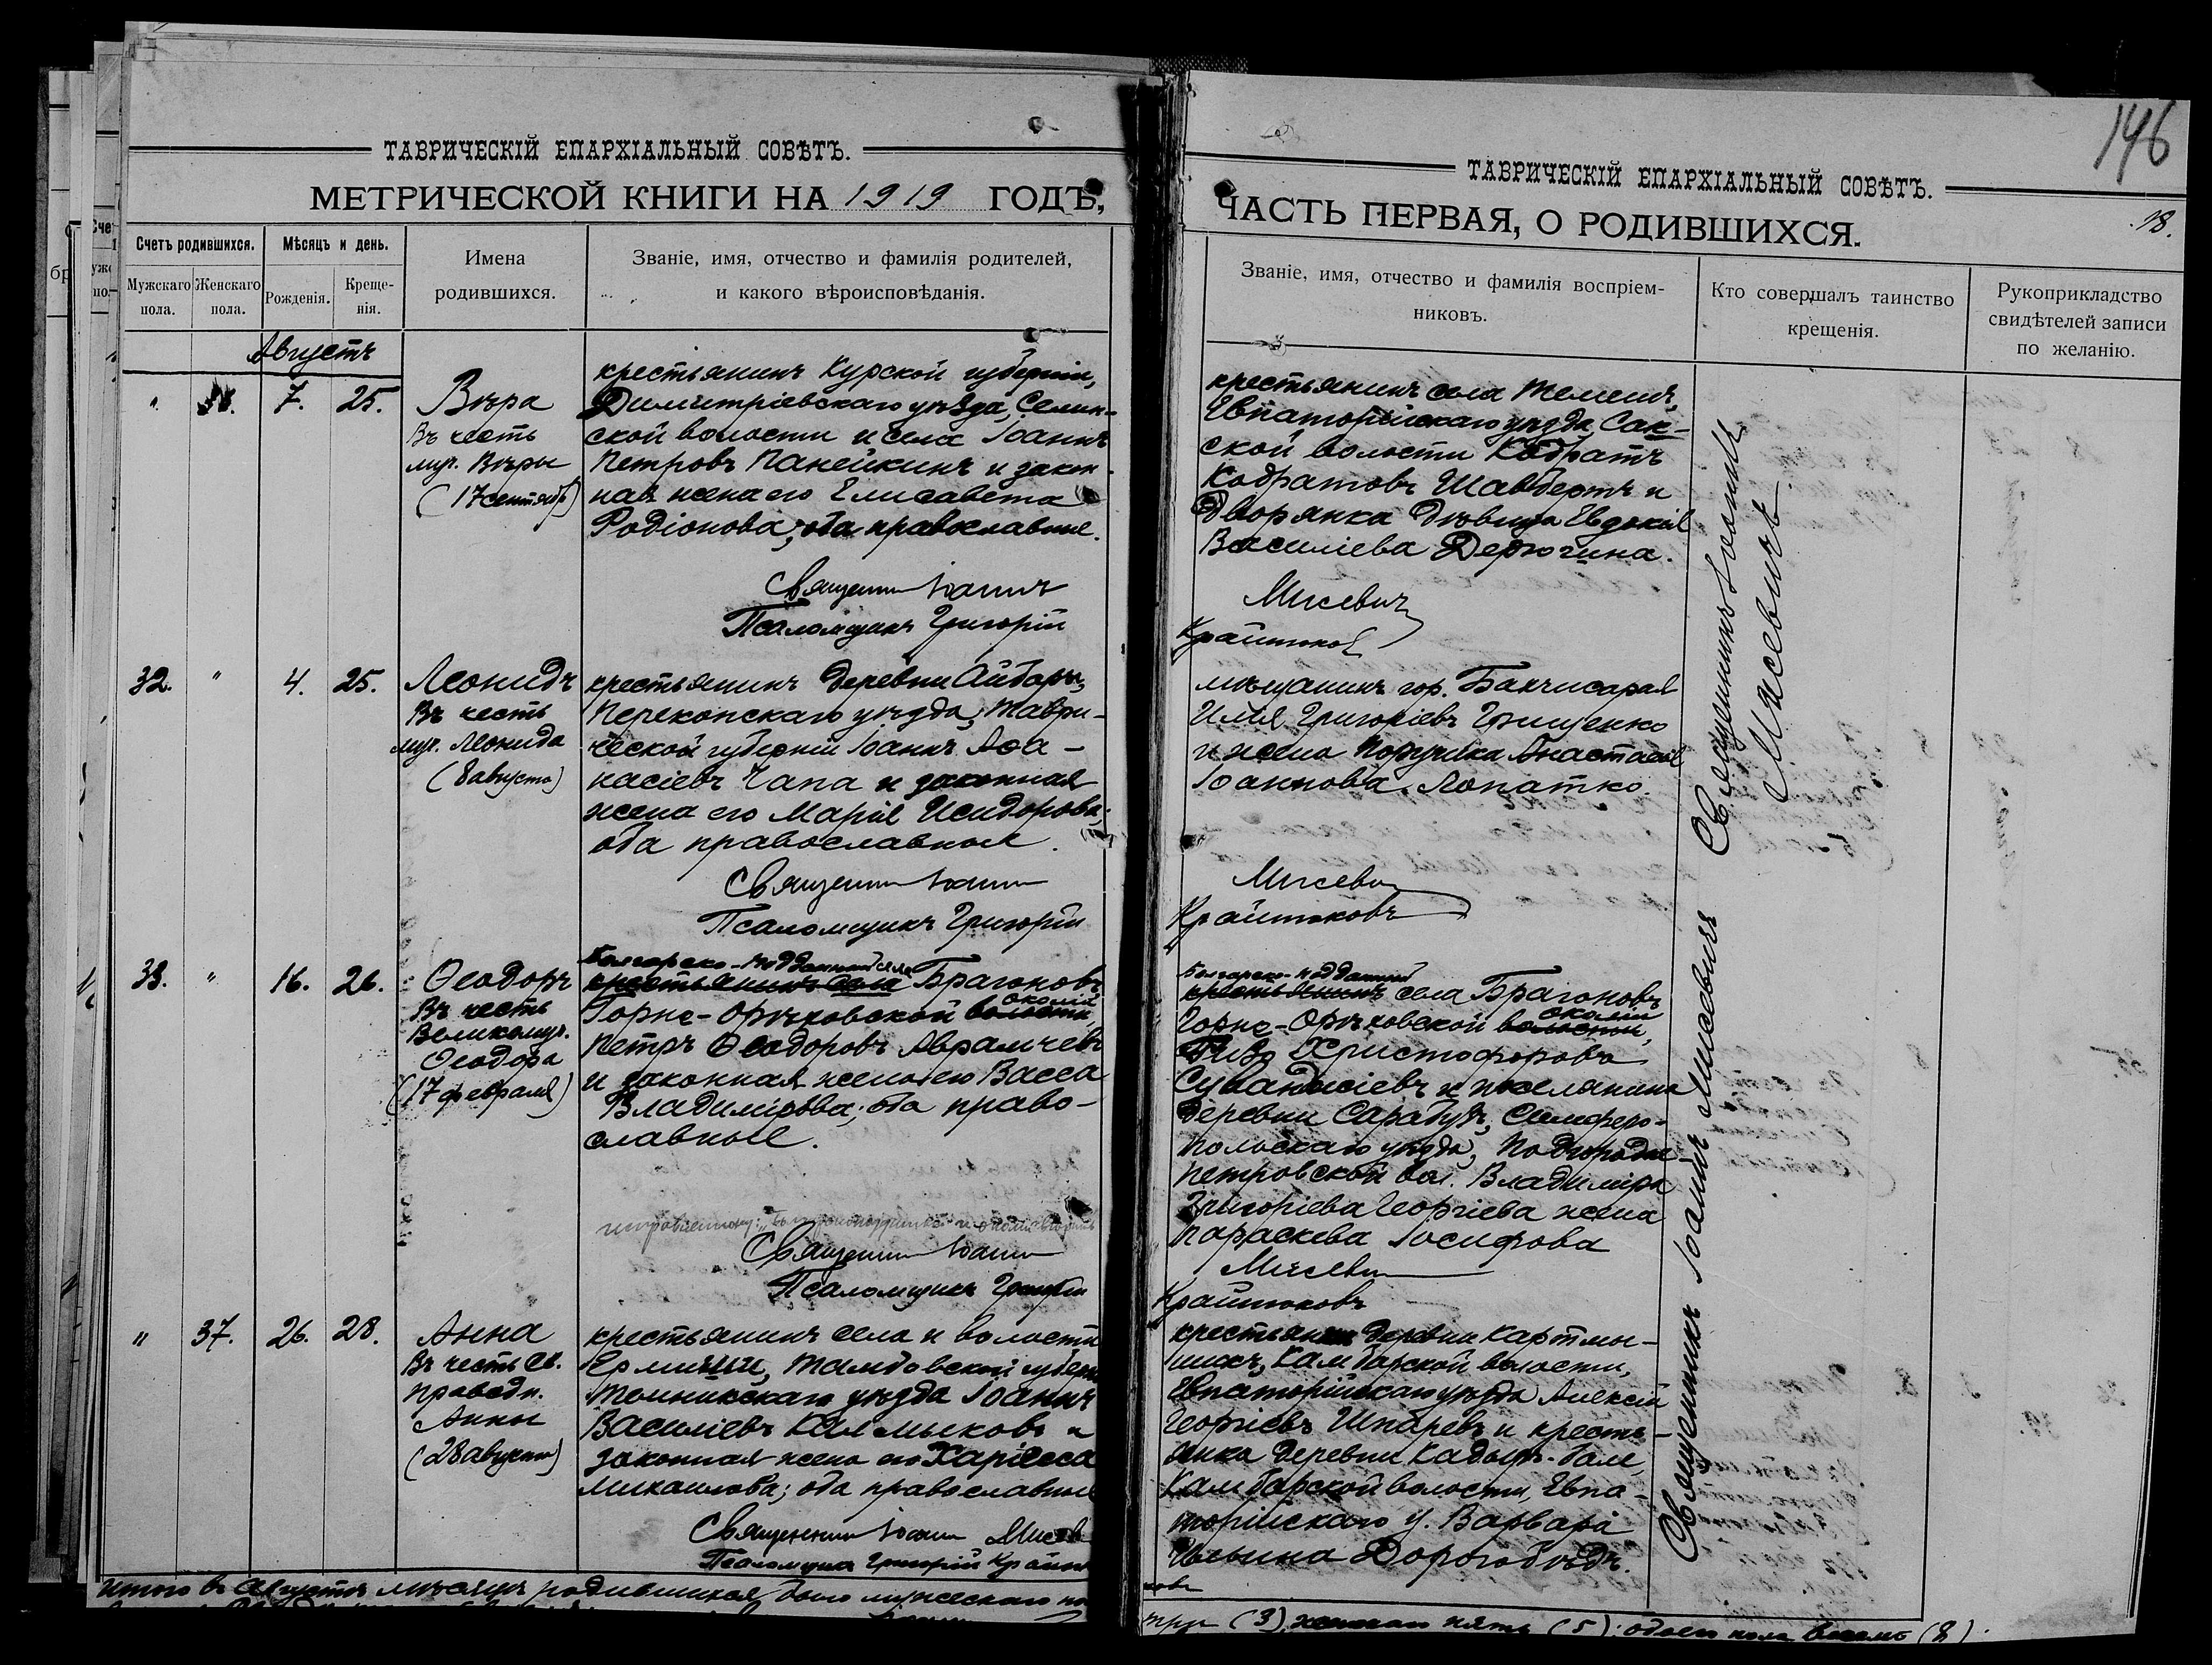 ТАВРИЧЕСКІЙ ЕПАРХІАЛЬНЫЙ СОВѢТЪ.
МЕТРИЧЕСКОЙ КНИГИ НА 1919 ГОДЪ,
Счетъ родившихся.
Мѣсяцъ и день.
Имена
родившихся.
Званіе, имя, отчество и фамилія родителей,
и какого вѣроисповѣданія.
Мужскаго
пола.
Женскаго
пола.
Рожденія.
Креще-
нія.
Августъ
" 7. 25.
Вѣра
Въ честь
муч. Вѣры
(17 сентябр)
крестьянинъ Курской губерніи,
Димитріевскаго уѣзда, Селин-
ской волости и села Іоаннъ
Петровъ Панейкинъ и закон-
ная жена его Елисавета
Родіонова; оба православные.
Священникъ Іоаннъ
Псаломщикъ Григорій
32. " 4. 25.
Леонидъ
Въ честь
муч. Леонида
(8 августа)
крестьянинъ деревни Айбары,
Перекопскаго уѣзда, Таври-
ческой губерніи Іоаннъ Афа-
насіевъ Чапа и законная
жена его Марія Исидорова;
оба православные.
Священникъ Іоаннъ
Псаломщикъ Григорій
33. " 16. 26.
Ѳеодоръ
Въ честь
Великомуч.
Ѳеодора
(17 февраля)
Болгарско-подданный села
крестьянинъ села Брагоновъ
околіи
Горне-Орѣховской волости,
Петръ Ѳеодоровъ Аврамчевъ
и законная жена его Васса
Владимірова; оба право-
славные.
Священникъ Іоаннъ
Псаломщикъ Григорій
" 37. 26. 28.
Анна
Въ честь св.
праведн.
Анны
(28 августа)
крестьянинъ села и волости
Ермиши, Тамбовской губерн
уѣзда Іоаннъ
Василіевъ Калмыковъ и
законная жена его Харіесса
Михаилова; оба православные
Священникъ Іоаннъ Мисев
Псаломщикъ Григорій Крайтю
Итого въ Августѣ мѣсяцѣ родившихся было мужескаго по
ТАВРИЧЕСКІЙ ЕПАРХІАЛЬНЫЙ СОВѢТЪ.
ЧАСТЬ ПЕРВАЯ, О РОДИВШИХСЯ.
146
18.
Званіе, имя, отчество и фамилія воспріем-
никовъ.
Кто совершалъ таинство
крещенія.
Рукоприкладство
свидѣтелей записи
по желанію.
крестьянинъ села Темешъ,
Евпаторійскаго уѣзда, Сак-
ской волости Кодратъ
Кодратовъ Шавбертъ и
Дворянка дѣвица Евдокія
Василіева Дерюгина.
Мисевичъ
Крайтюков
мѣщанинъ гор. Бахчисарая
Илія Григоріевъ Грищенко
и жена поручика Анастасія
Іоаннова Лопатко.
Мисевич
Крайтюковъ
Болгарско-подданный
крестьянинъ села Брагоновъ
околіи
Горне-Орѣховской волости,
Христофоровъ
и поселянина
деревни Сарабузъ, Симферо-
польскаго уѣзда, Подгородне-
Петровской вол. Владиміра
Григоріева Георгіева жена
Параскева Іосифова
Мисевич
Крайтюковъ
крестьянинъ деревни Картмы-
шикъ, Камбарской волости,
Евпаторійскаго уѣзда Алексій
Георгіевъ Шпаревъ и кресть-
янка деревни Кадыр-бали,
Камбарской волости, Евпа-
торійскаго у. Варвара
Ильина Дорогобѣдъ.
ковъ
три (3), женскаго пять (5); обоего пола восемь (8).
Священникъ Іоаннъ
Мисевичъ
Священникъ Іоаннъ Мисевичъ